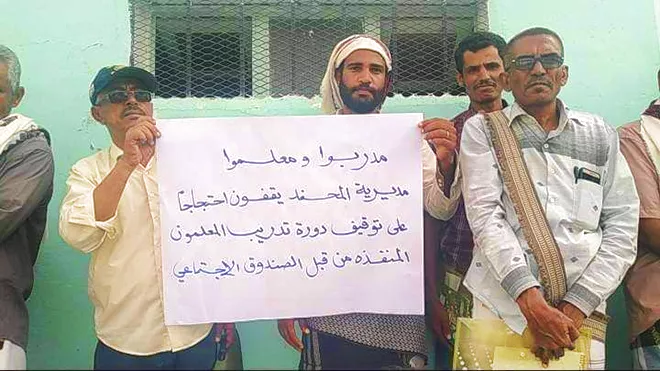 مدربوا و معلموا
مديرية المحفد يقفون احتجاجاً
على توقيف دورة تدريب المعلمون
المنفذه من قبل الصندوق الإجتماعي